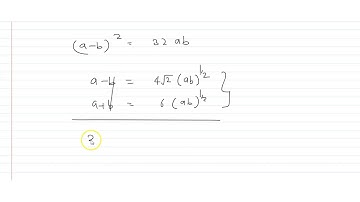 (a-b)² = 32 ab
a-b = 4√2 (ab)^½
a+b = 6 (ab)^½
2